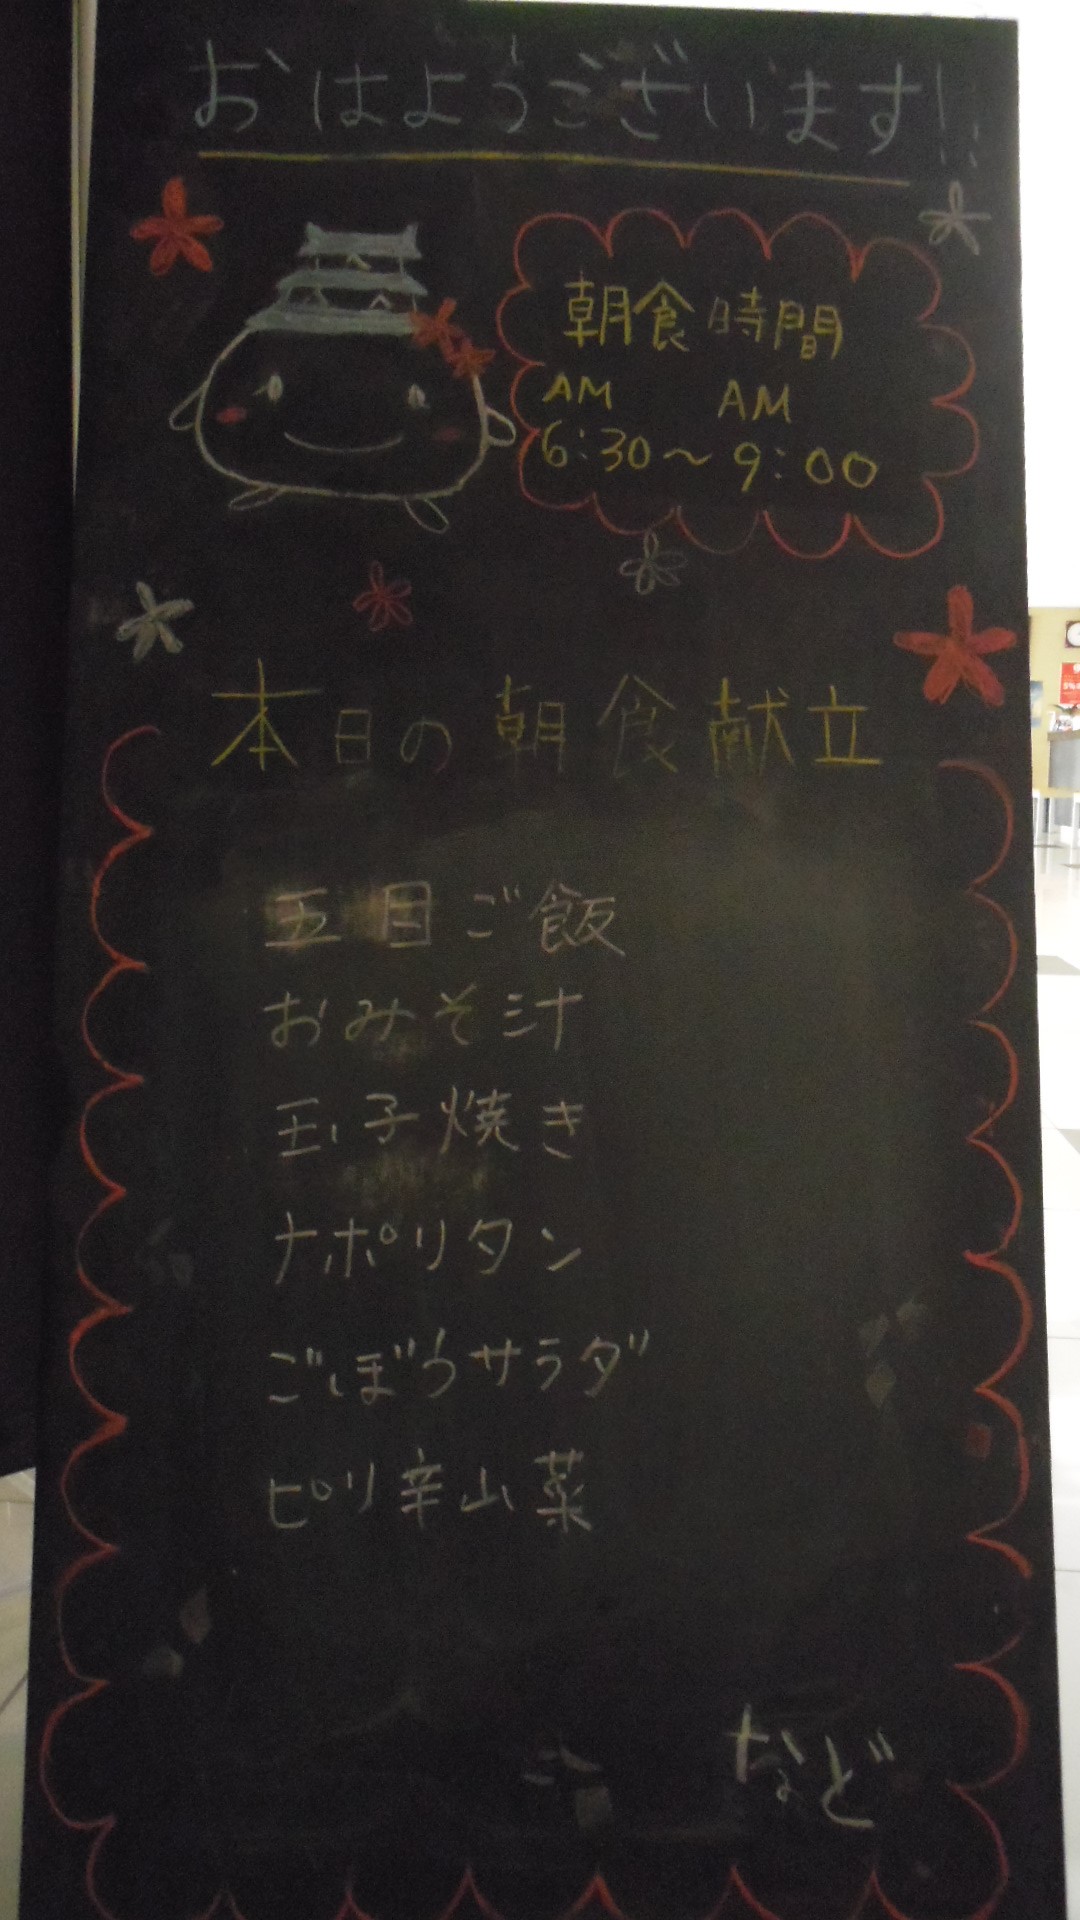 おはようございます!!
朝食時間
AM AM
6:30〜9:00
本日の朝食献立
五目ご飯
おみそ汁
玉子焼き
ナポリタン
ごぼうサラダ
ピリ辛山菜
など